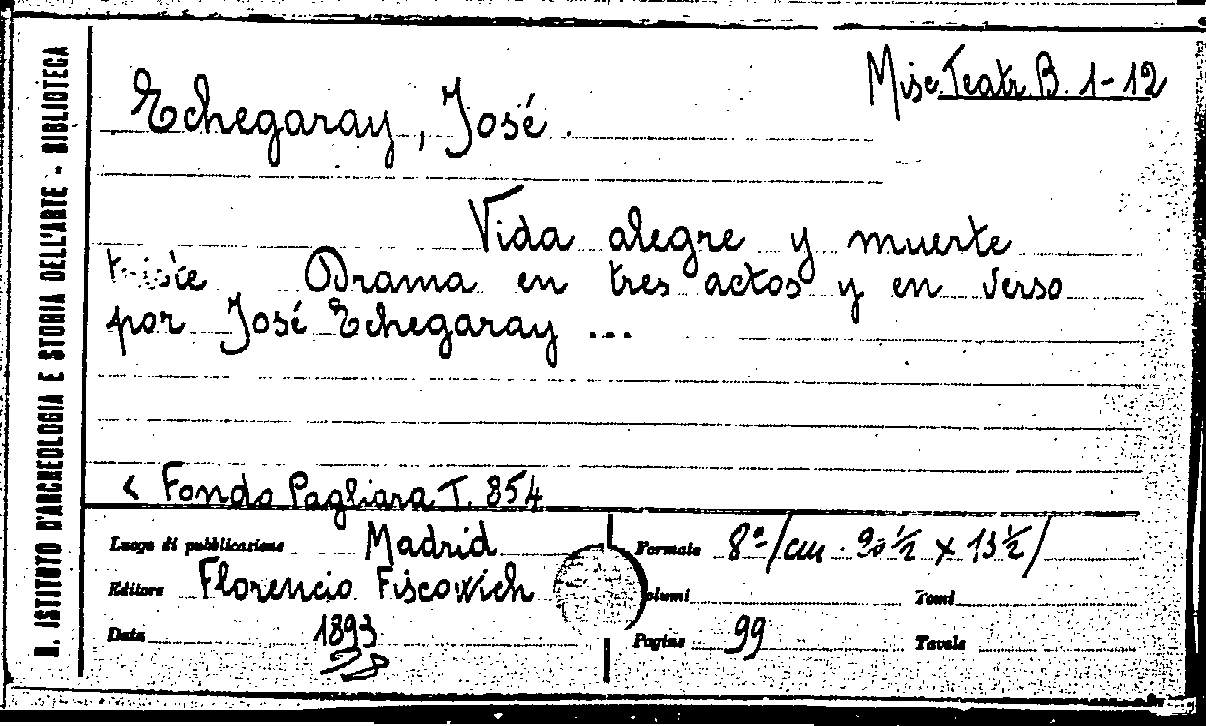 R. ISTITUTO D'ARCHEOLOGIA E STORIA DELL'ARTE - BIBLIOTECA
Misc. Teatr. B. 1-12
Echegaray, José.
Vida alegre y muerte
triste Drama en tres actos y en verso
por José Echegaray ...
< Fondo Pagliara T. 854
Luogo di pubblicazione Madrid
Formato 8º/cm. 20 ½ x 13 ½/
Editore Florencio Fiscowich
Volumi Tomi
Data 1893
Pagine 99 Tavole